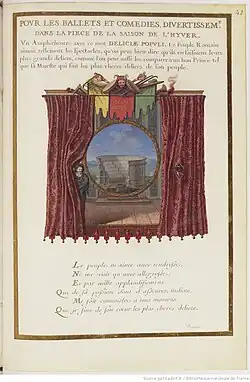 POVR LES BALLETS ET COMEDIES, DIVERTISSEM.t
DANS LA PIECE DE LA SAISON DE L'HYVER.
Vn Amphitheatre avec ce mot DELICIÆ POPVLI. Le Peuple Romain
aimoit tellement les Spectacles, qu'on peut bien dire qu'ils en faisoient leurs
plus grands delices, comme l'on peut aussi les comparer à un bon Prince tel
que sa Majesté qui fait les plus cheres delices de son peuple.
Le peuple m'aime avec tendresse,
Ne me voit qu'avec allegresse,
Et par mille applaudissemens
Que de sa passion
M
Que je fais de son cœur les plus cheres delices.
Source gallica.bnf.fr / Bibliothèque nationale de France